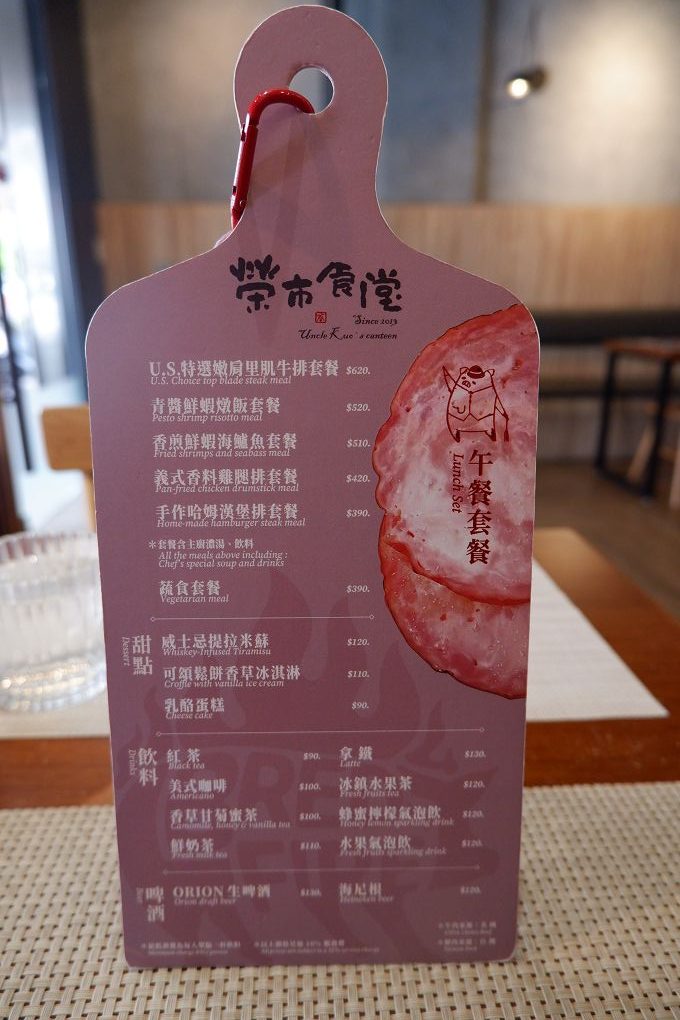 榮市食堂
Since 2013
Uncle Kuo's canteen
午餐套餐
Lunch Set
U.S.特選嫩肩里肌牛排套餐 $620.
U.S. Choice top blade steak meal
青醬鮮蝦燉飯套餐 $520.
Pesto shrimp risotto meal
香煎鮮蝦海鱸魚套餐 $510.
Fried shrimps and seabass meal
義式香料雞腿排套餐 $420.
Pan-fried chicken drumstick meal
手作哈姆漢堡排套餐 $390.
Home-made hamburger steak meal
*套餐含主廚濃湯、飲料
All the meals above including :
Chef's special soup and drinks
蔬食套餐 $390.
Vegetarian meal
甜點
Dessert
威士忌提拉米蘇 $120.
Whiskey-Infused Tiramisu
可頌鬆餅香草冰淇淋 $110.
Croffle with vanilla ice cream
乳酪蛋糕 $90.
Cheese cake
飲料
Drinks
紅茶 $90.
Black tea
美式咖啡 $100.
Americano
香草甘菊蜜茶 $100.
Camomile, honey & vanilla tea
鮮奶茶 $110.
Fresh milk tea
拿鐵 $130.
Latte
冰鎮水果茶 $120.
Fresh fruits tea
蜂蜜檸檬氣泡飲 $120.
Honey lemon sparkling drink
水果氣泡飲 $120.
Fresh fruits sparkling drink
啤酒
Beer
ORION 生啤酒 $130.
Orion draft beer
海尼根 $120.
Heineken beer